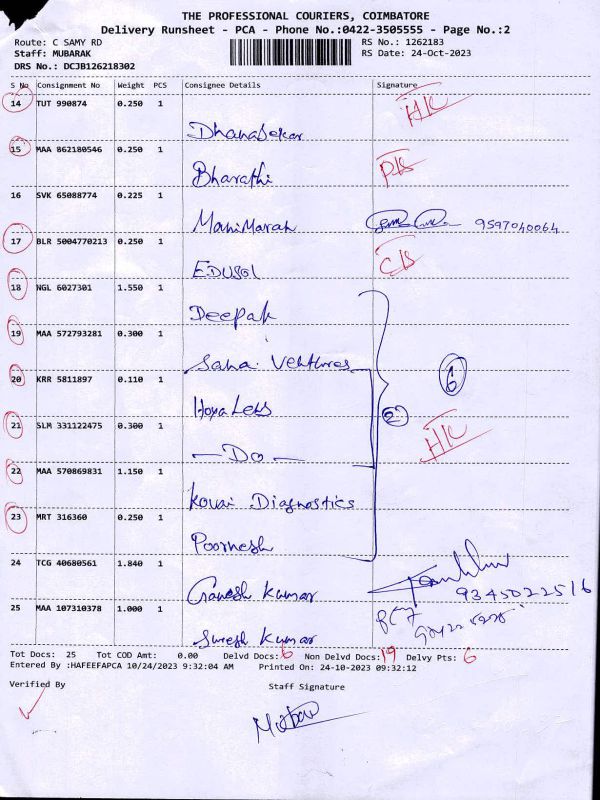 THE PROFESSIONAL COURIERS, COIMBATORE
Delivery Runsheet - PCA - Phone No.:0422-3505555 - Page No.:2
Route: C SAMY RD RS No.: 1262183
Staff: MUBARAK RS Date: 24-Oct-2023
DRS No.: DCJB126218302
S No Consignment No Weight PCS Consignee Details Signature
14 TUT 990874 0.250 1
Dhanasekar
15 MAA 862180546 0.250 1
Bharathi
16 SVK 65088774 0.225 1
Manimaran 9597040064
17 BLR 5004770213 0.250 1
EDUSOL
18 NGL 6027301 1.550 1
Deepak
19 MAA 572793281 0.300 1
Sana Ventures
20 KRR 5811897 0.110 1 6
Hoya Lens 2
21 SLM 331122475 0.300 1
— Do —
22 MAA 570869831 1.150 1
Kovai Diagnostics
23 MRT 316360 0.250 1
Poornesh
24 TCG 40680561 1.840 1
Ganesh Kumar 9345022516
25 MAA 107310378 1.000 1
Suresh Kumar
Tot Docs: 25 Tot COD Amt: 0.00 Delvd Docs: 6 Non Delvd Docs: 19 Delvy Pts: 6
Entered By :HAFEEFAPCA 10/24/2023 9:32:04 AM Printed On: 24-10-2023 09:32:12
Verified By Staff Signature